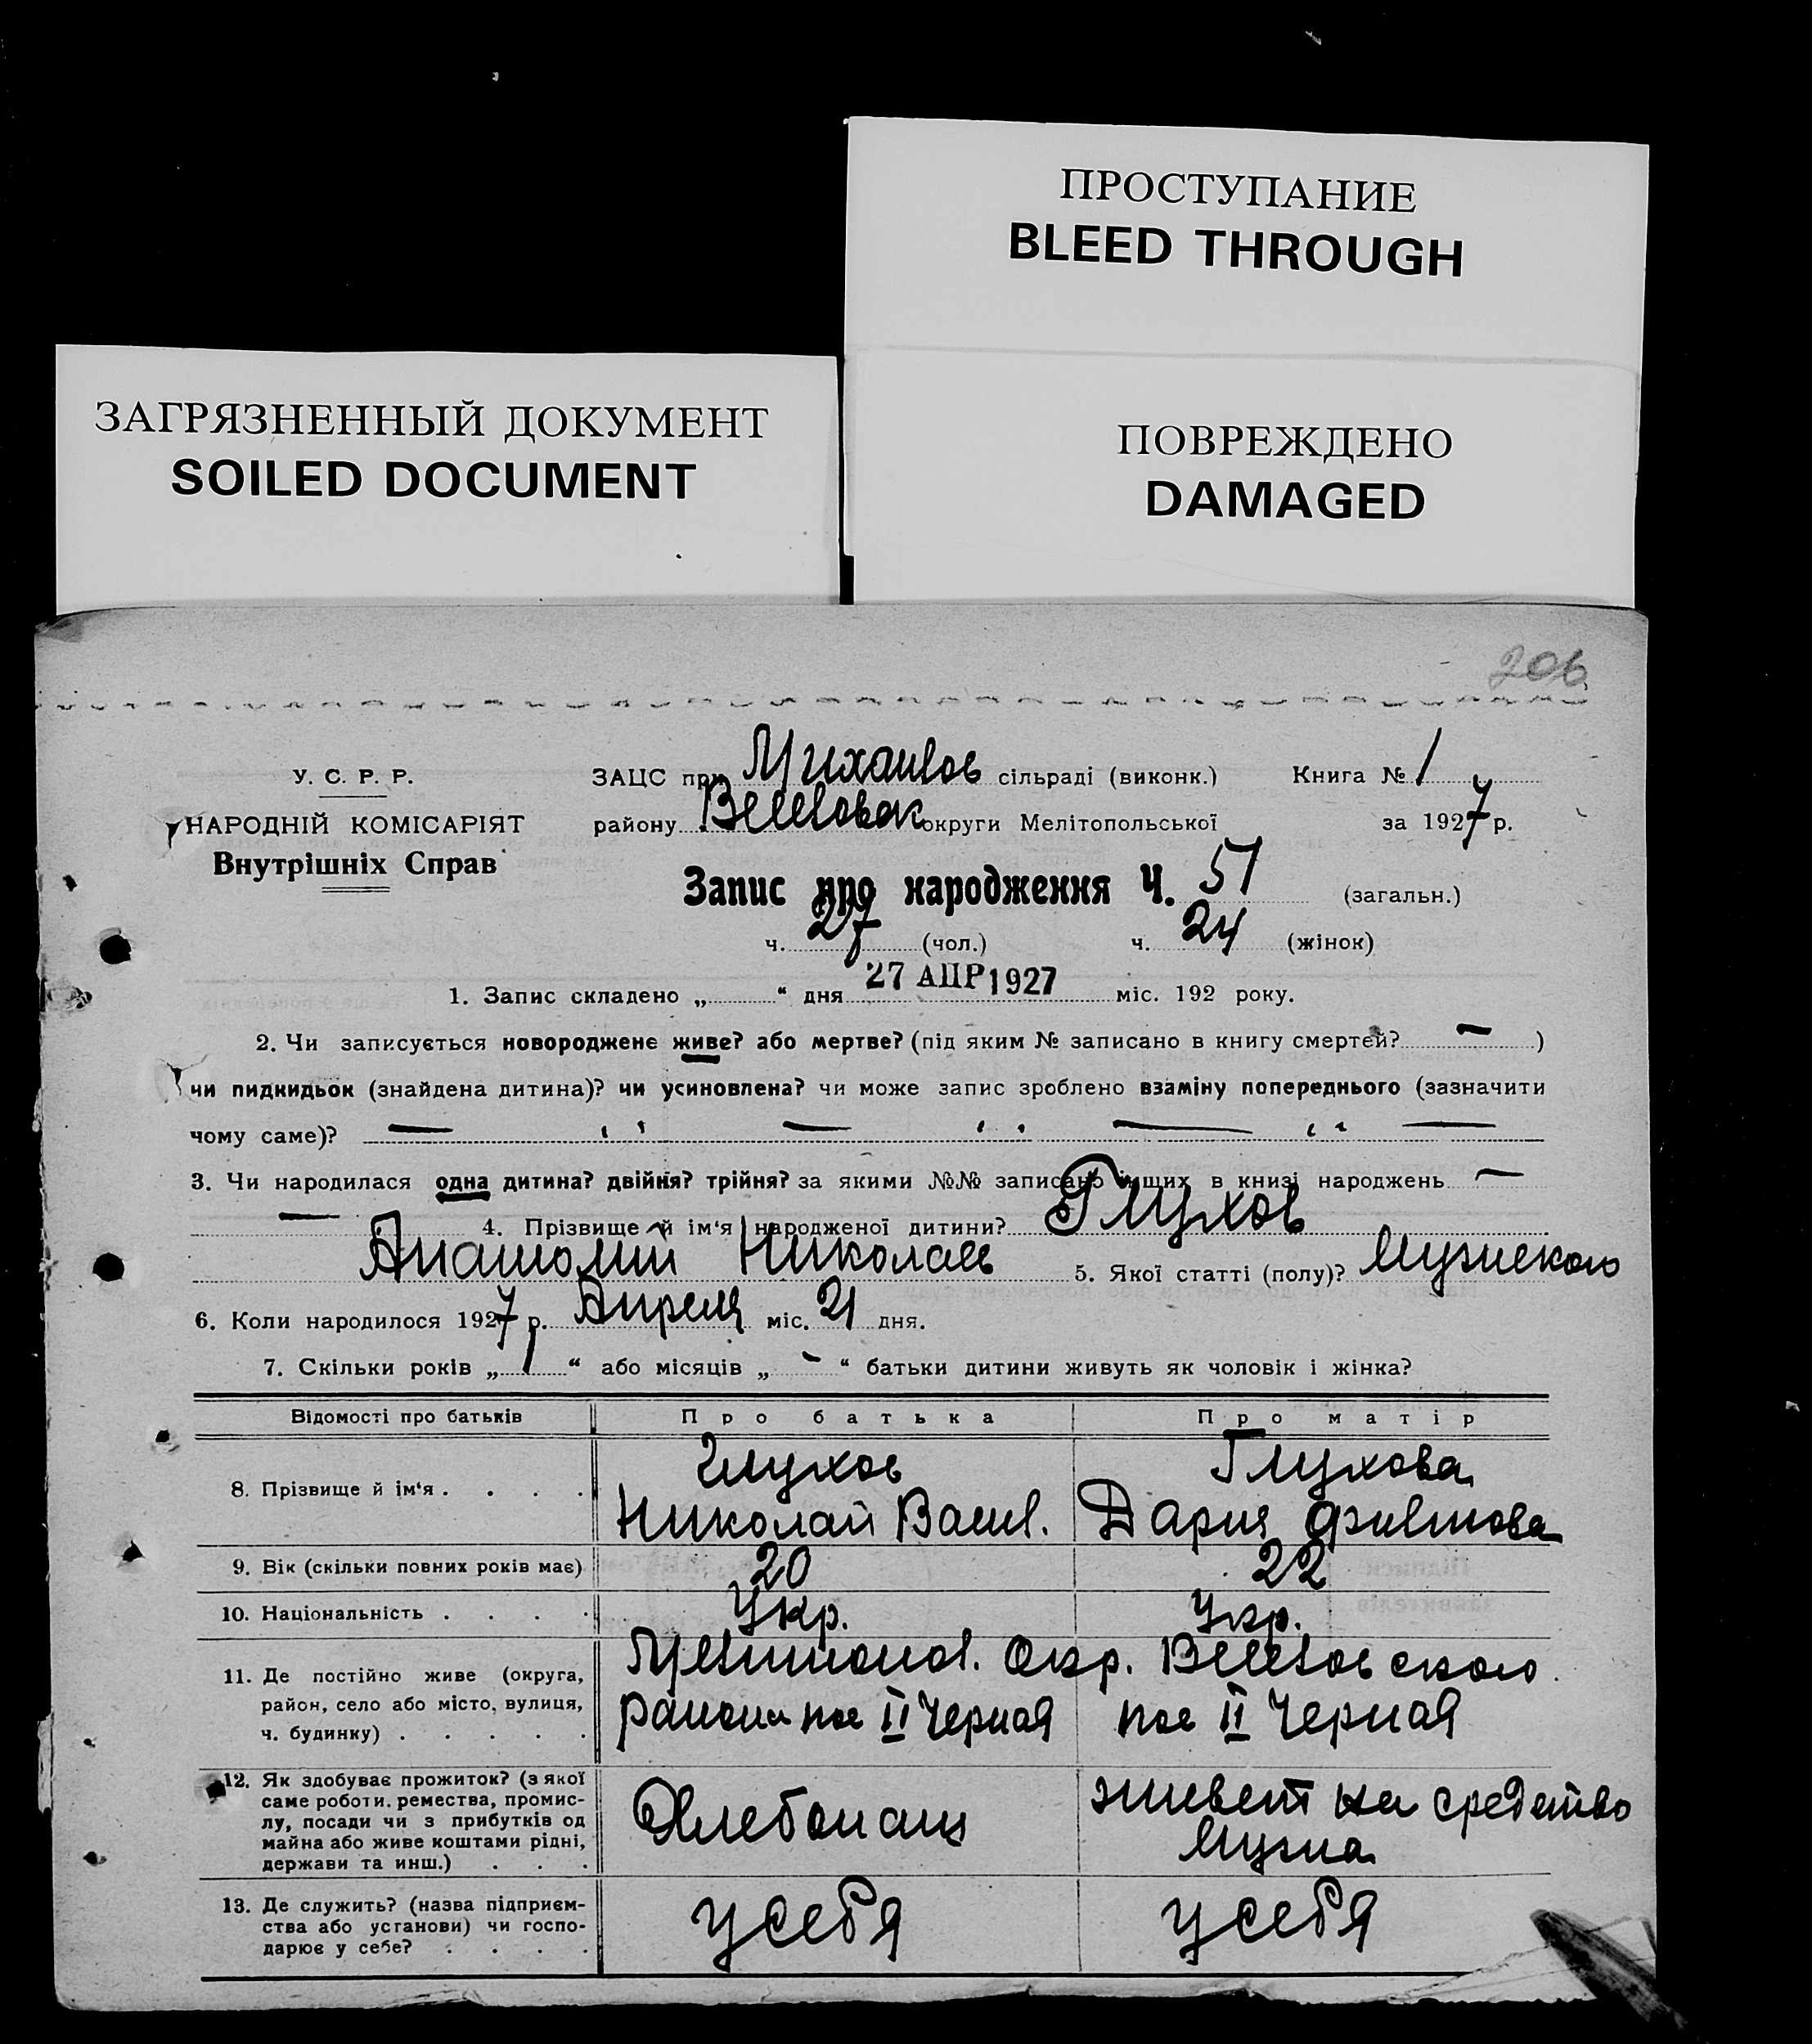 ПРОСТУПАНИЕ
BLEED THROUGH
ЗАГРЯЗНЕННЫЙ ДОКУМЕНТ
SOILED DOCUMENT
ПОВРЕЖДЕНО
DAMAGED
206
У. С. Р. Р.
НАРОДНІЙ КОМІСАРІЯТ
Внутрішніх Справ
ЗАЦС при Михайлов сільраді (виконк.) Книга № 1
району Веселовск округи Мелітопольської за 1927 р.
Запис про народження Ч. 51 (загальн.)
ч. 27 (чол.) ч. 24 (жінок)
1. Запис складено „ “ дня 27 АПР 1927 міс. 192 року.
2. Чи записується новороджене живе? або мертве? (під яким № записано в книгу смертей? — )
чи пидкидьок (знайдена дитина)? чи усиновлена? чи може запис зроблено взаміну попереднього (зазначити
чому саме)? — “ — “ — “ —
3. Чи народилася одна дитина? двійня? трійня? за якими №№ записано інших в книзі народжень —
— 4. Прізвище й ім‘я народженої дитини? Глухов
Анатолий Николаев 5. Якої статті (полу)? Мужского
6. Коли народилося 1927 р. Апреля міс. 21 дня.
7. Скільки років „ 1 “ або місяців „ - “ батьки дитини живуть як чоловік і жінка?
Відомості про батьків Про батька Про матір
8. Прізвище й ім‘я . . . . Глухов Николай Васил. Глухова Дария Филипова
9. Вік (скільки повних років має) 20 22
10. Національність . . . . Укр. Укр.
11. Де постійно живе (округа,
район, село або місто, вулиця,
ч. будинку) . . . . .
Мелитопол. Окр. Веселовского
района пос II Черная пос II Черная
12. Як здобуває прожиток? (з якої
саме роботи. ремества, промис-
лу, посади чи з прибутків од
майна або живе коштами рідні,
держави та инш.) . . .
Хлебопаш
живет на средство
мужа
13. Де служить? (назва підприєм-
ства або установи) чи госпо-
дарює у себе? . . . .
у себя у себя